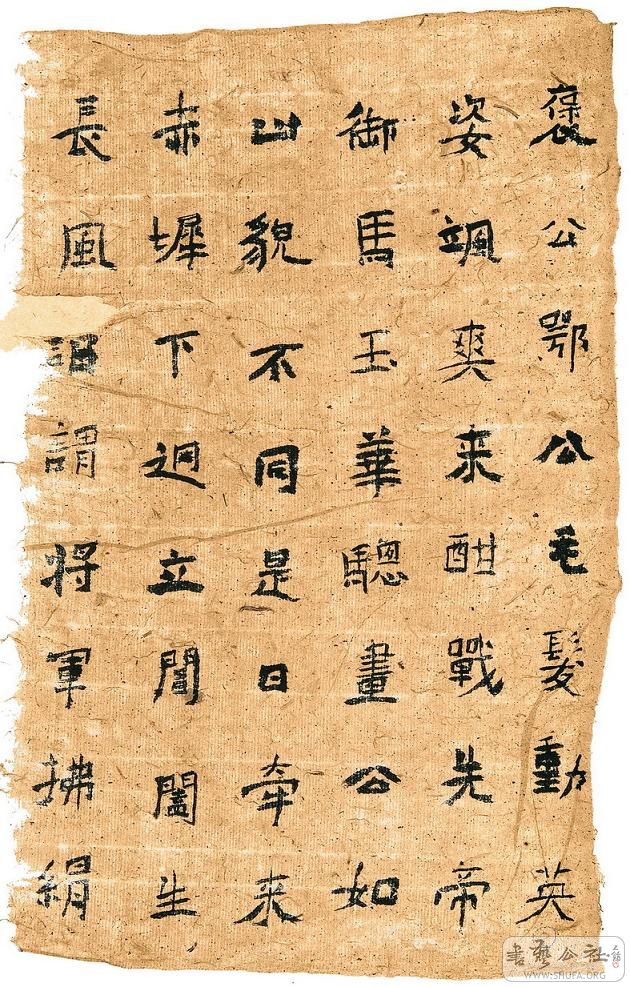 褒公鄂公毛髮動英
姿颯爽来酣戰先帝
御馬玉華驄畫公如
山貌不同是日牽来
赤墀下迥立閶闔生
長風詔謂将軍拂絹
書藝公社
WWW.SHUFA.ORG